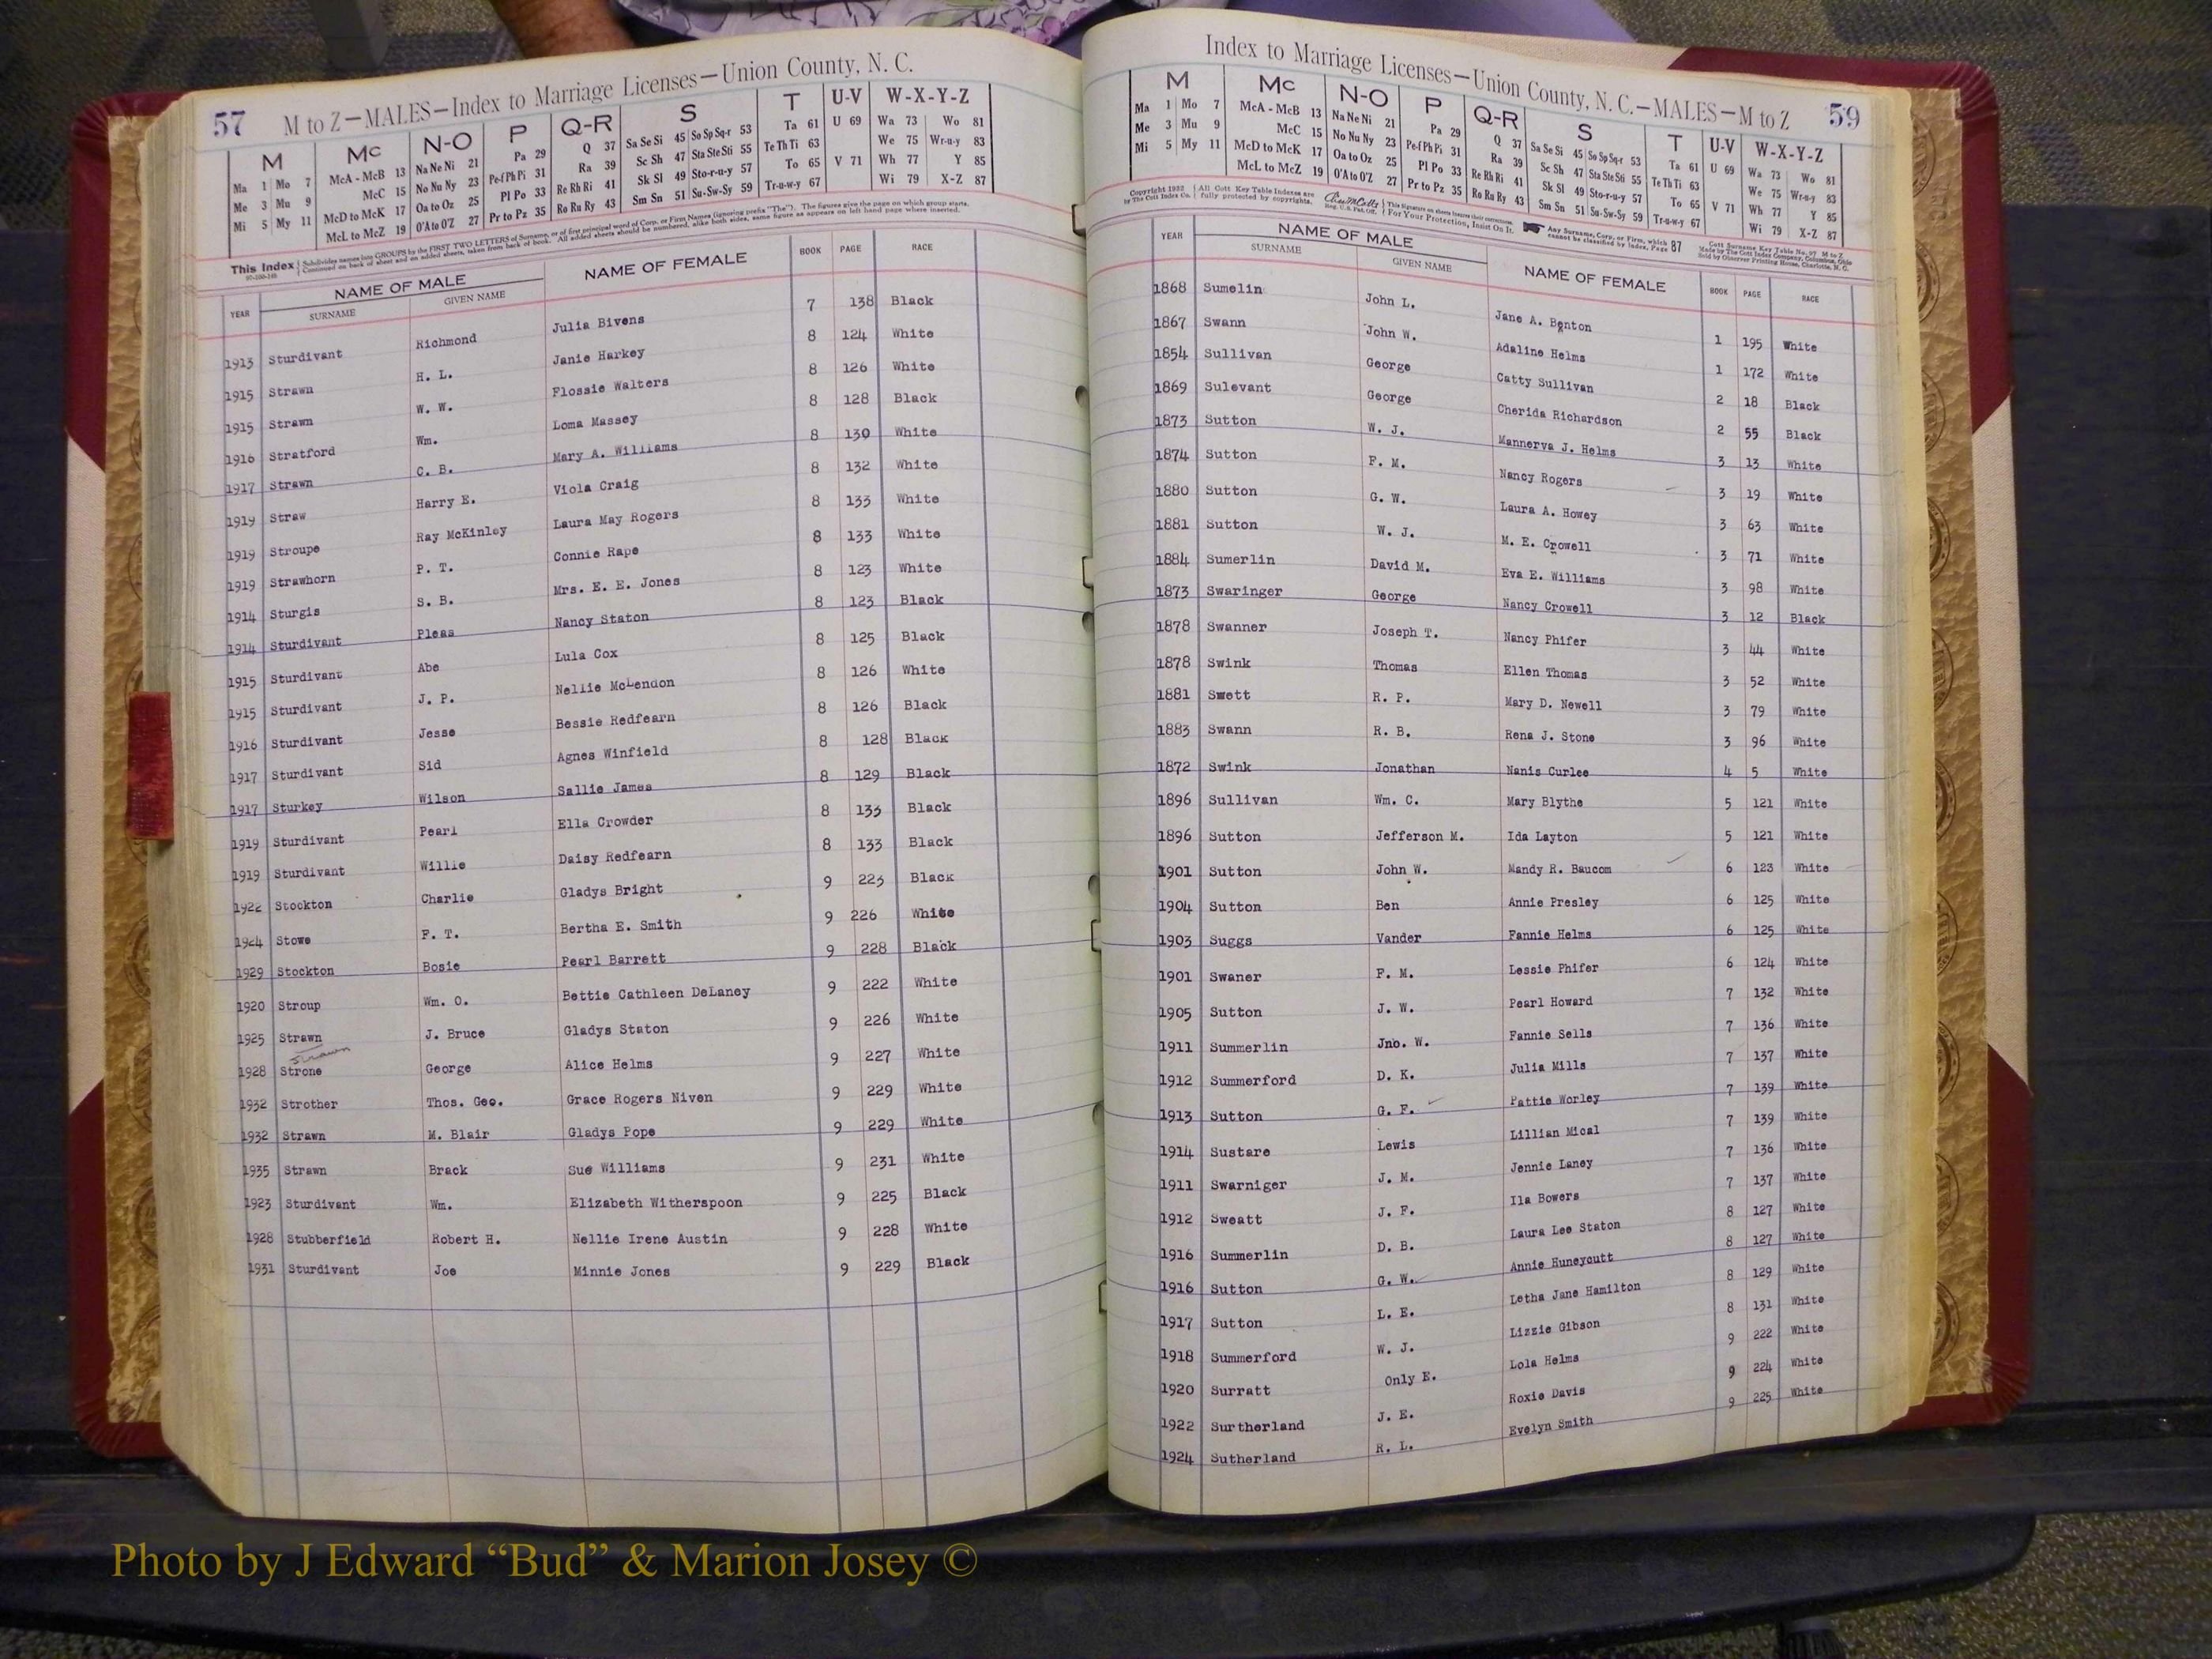 57 M to Z—MALES—Index to Marriage Licenses—Union County, N. C.
M Mc N-O P Q-R S T U-V W-X-Y-Z
Ma 1 Mo 7 McA - McB 13 Na Ne Ni 21 Pa 29 Q 37 Sa Se Si 45 So Sp Sq-r 53 Ta 61 U 69 Wa 73 Wo 81
Me 3 Mu 9 McC 15 No Nu Ny 23 Pe-f Ph Pi 31 Ra 39 Sc Sh 47 Sta Ste Sti 55 Te Th Ti 63 We 75 Wr-u-y 83
Mi 5 My 11 McD to McK 17 Oa to Oz 25 Pl Po 33 Re Rh Ri 41 Sk Sl 49 Sto-r-u-y 57 To 65 V 71 Wh 77 Y 85
McL to McZ 19 O'A to O'Z 27 Pr to Pz 35 Ro Ru Ry 43 Sm Sn 51 Su-Sw-Sy 59 Tr-u-w-y 67 Wi 79 X-Z 87
This Index { Subdivides names into GROUPS by the FIRST TWO LETTERS of Surname, or of first principal word of Corp. or Firm Names (ignoring prefix "The"). The figures give the page on which group starts.
Continued on back of sheet and on added sheets, taken from back of book. All added sheets should be numbered, alike both sides, same figure as appears on left hand page where inserted.
YEAR NAME OF MALE NAME OF FEMALE BOOK PAGE RACE
SURNAME GIVEN NAME
1913 Sturdivant Richmond Julia Bivens 7 138 Black
1915 Strawn H. L. Janie Harkey 8 124 White
1915 Strawn W. W. Flossie Walters 8 126 White
1916 Stratford Wm. Loma Massey 8 128 Black
1917 Strawn C. B. Mary A. Williams 8 130 White
1919 Straw Harry E. Viola Craig 8 132 White
1919 Stroupe Ray McKinley Laura May Rogers 8 133 White
1919 Strawhorn P. T. Connie Rape 8 133 White
1914 Sturgis S. B. Mrs. E. E. Jones 8 123 White
1914 Sturdivant Pleas Nancy Staton 8 123 Black
1915 Sturdivant Abe Lula Cox 8 125 Black
1915 Sturdivant J. P. Nellie McLendon 8 126 White
1916 Sturdivant Jesse Bessie Redfearn 8 126 Black
1917 Sturdivant Sid Agnes Winfield 8 128 Black
1917 Sturkey Wilson Sallie James 8 129 Black
1919 Sturdivant Pearl Ella Crowder 8 133 Black
1919 Sturdivant Willie Daisy Redfearn 8 133 Black
1922 Stockton Charlie Gladys Bright 9 223 Black
1924 Stowe F. T. Bertha E. Smith 9 226 White
1929 Stockton Bosie Pearl Barrett 9 228 Black
1920 Stroup Wm. O. Bettie Cathleen DeLaney 9 222 White
1925 Strawn J. Bruce Gladys Staton 9 226 White
Strawn
1928 Strone George Alice Helms 9 227 White
1932 Strother Thos. Geo. Grace Rogers Niven 9 229 White
1932 Strawn M. Blair Gladys Pope 9 229 White
1935 Strawn Brack Sue Williams 9 231 White
1923 Sturdivant Wm. Elizabeth Witherspoon 9 225 Black
1928 Stubberfield Robert H. Nellie Irene Austin 9 228 White
1931 Sturdivant Joe Minnie Jones 9 229 Black
Index to Marriage Licenses—Union County, N. C.—MALES—M to Z 59
M Mc N-O P Q-R S T U-V W-X-Y-Z
Ma 1 Mo 7 McA - McB 13 Na Ne Ni 21 Pa 29 Q 37 Sa Se Si 45 So Sp Sq-r 53 Ta 61 U 69 Wa 73 Wo 81
Me 3 Mu 9 McC 15 No Nu Ny 23 Pe-f Ph Pi 31 Ra 39 Sc Sh 47 Sta Ste Sti 55 Te Th Ti 63 We 75 Wr-u-y 83
Mi 5 My 11 McD to McK 17 Oa to Oz 25 Pl Po 33 Re Rh Ri 41 Sk Sl 49 Sto-r-u-y 57 To 65 V 71 Wh 77 Y 85
McL to McZ 19 O'A to O'Z 27 Pr to Pz 35 Ro Ru Ry 43 Sm Sn 51 Su-Sw-Sy 59 Tr-u-w-y 67 Wi 79 X-Z 87
Copyright 1932 by The Cott Index Co. { All Cott Key Table Indexes are fully protected by copyrights. Reg. U.S. Pat. Off. } This signature on sheets insures their correctness. For Your Protection, Insist On It. Any Surname, Corp. or Firm, which cannot be classified by Index, Page 87 Cott Surname Key Table No. 97 M to Z Made by The Cott Index Company, Columbus, Ohio Sold by Observer Printing House, Charlotte, N. C.
YEAR NAME OF MALE NAME OF FEMALE BOOK PAGE RACE
SURNAME GIVEN NAME
1868 Sumelin John L. Jane A. Benton 1 195 White
1867 Swann John W. Adaline Helms 1 172 White
1854 Sullivan George Catty Sullivan 2 18 Black
1869 Sulevant George Cherida Richardson 2 55 Black
1873 Sutton W. J. Mannerva J. Helms 3 13 White
1874 Sutton F. M. Nancy Rogers 3 19 White
1880 Sutton G. W. Laura A. Howey 3 63 White
1881 Sutton W. J. M. E. Crowell 3 71 White
1884 Sumerlin David M. Eva E. Williams 3 98 White
1873 Swaringer George Nancy Crowell 3 12 Black
1878 Swanner Joseph T. Nancy Phifer 3 44 White
1878 Swink Thomas Ellen Thomas 3 52 White
1881 Swett R. P. Mary D. Newell 3 79 White
1883 Swann R. B. Rena J. Stone 3 96 White
1872 Swink Jonathan Nanis Curlee 4 5 White
1896 Sullivan Wm. C. Mary Blythe 5 121 White
1896 Sutton Jefferson M. Ida Layton 5 121 White
1901 Sutton John W. Mandy R. Baucom 6 123 White
1904 Sutton Ben Annie Presley 6 125 White
1903 Suggs Vander Fannie Helms 6 125 White
1901 Swaner F. M. Lessie Phifer 6 124 White
1905 Sutton J. W. Pearl Howard 7 132 White
1911 Summerlin Jno. W. Fannie Sells 7 136 White
1912 Summerford D. K. Julia Mills 7 137 White
1913 Sutton G. F. Pattie Worley 7 139 White
1914 Sustare Lewis Lillian Mical 7 139 White
1911 Swarniger J. M. Jennie Laney 7 136 White
1912 Sweatt J. F. Ila Bowers 7 137 White
1916 Summerlin D. B. Laura Lee Staton 8 127 White
1916 Sutton G. W. Annie Huneycutt 8 127 White
1917 Sutton L. E. Letha Jane Hamilton 8 129 White
1918 Summerford W. J. Lizzie Gibson 8 131 White
1920 Surratt Only E. Lola Helms 9 222 White
1922 Surtherland J. E. Roxie Davis 9 224 White
1924 Sutherland R. L. Evelyn Smith 9 225 White
Photo by J Edward “Bud” & Marion Josey ©